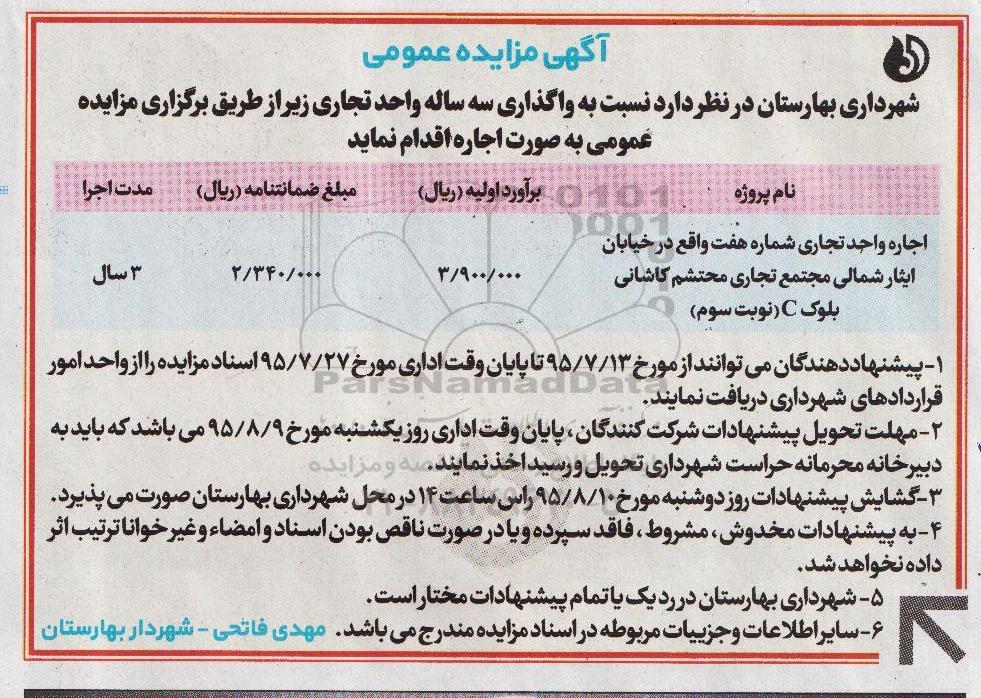 آگهی مزایده عمومی
شهرداری بهارستان در نظر دارد نسبت به واگذاری سه ساله واحد تجاری زیر از طریق برگزاری مزایده
عمومی به صورت اجاره اقدام نماید
نام پروژه برآورد اولیه (ریال) مبلغ ضمانتنامه (ریال) مدت اجرا
اجاره واحد تجاری شماره هفت واقع در خیابان
ایثار شمالی مجتمع تجاری محتشم کاشانی ۳/۹۰۰/۰۰۰ ۲/۳۴۰/۰۰۰ ۳ سال
بلوک C (نوبت سوم)
۱- پیشنهاد دهندگان می توانند از مورخ ۹۵/۷/۱۳ تا پایان وقت اداری مورخ ۹۵/۷/۲۷ اسناد مزایده را از واحد امور
قراردادهای شهرداری دریافت نمایند.
ParsNamadData
۲- مهلت تحویل پیشنهادات شرکت کنندگان ، پایان وقت اداری روز یکشنبه مورخ ۹۵/۸/۹ می باشد که باید به
دبیرخانه محرمانه حراست شهرداری تحویل و رسید اخذ نمایند.
۳- گشایش پیشنهادات روز دوشنبه مورخ ۹۵/۸/۱۰ راس ساعت ۱۴ در محل شهرداری بهارستان صورت می پذیرد.
۴- به پیشنهادات مخدوش ، مشروط ، فاقد سپرده و یا در صورت ناقص بودن اسناد و امضاء و غیر خوانا ترتیب اثر
داده نخواهد شد.
۵- شهرداری بهارستان در رد یک یا تمام پیشنهادات مختار است.
۶- سایر اطلاعات و جزییات مربوطه در اسناد مزایده مندرج می باشد. مهدی فاتحی - شهردار بهارستان